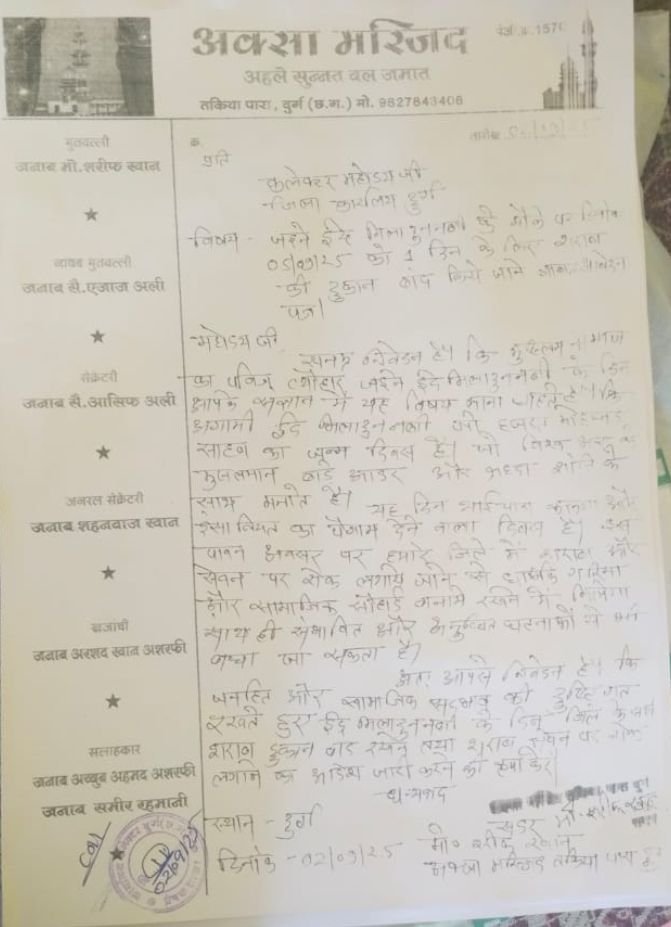 अक्सा मस्जिद
अहले सुन्नत वल जमात
तकिया पारा, दुर्ग (छ.ग.) मो. 9827843406
मुतवल्ली
जनाब मो.शरीफ खान
नायब मुतवल्ली
जनाब सै.एजाज अली
सेक्रेटरी
जनाब सै.आसिफ अली
जनरल सेक्रेटरी
जनाब शहनवाज खान
खजांची
जनाब अरशद खान अशरफी
सलाहकार
जनाब अय्युब अहमद अशरफी
जनाब समीर रहमानी
क.
तारीख
प्रति
कलेक्टर महोदय जी
जिला कार्यालय दुर्ग
विषय - जश्ने ईद मिलादुननबी के मौके पर दिनांक
05/09/25 को 1 दिन के लिए शराब
की दुकान बंद किये जाने बाबत आवेदन
पत्र।
महोदय जी
सविनम्र निवेदन है। कि मुस्लिम समाज
का पवित्र त्यौहार जश्ने ईद मिलादुननबी के दिन
आपके संज्ञान में यह विषय लाना चाहते है। कि
आगामी ईद मिलादुननबी जो हजरत मोहम्मद
साहब का जन्म दिवस है। जो विश्व भर के
मुसलमान बड़े आदर और श्रद्धा शांति के
साथ मनाते है। यह दिन भाईचारा और
इंसानियत का पैगाम देने वाला दिवस है। इस
पावन अवसर पर हमारे जिले में शराब और
सेवन पर रोक लगाये जाने से धार्मिक गरिमा
और सामाजिक सौहार्द बनाये रखने में मिलेगा
साथ ही संभावित और अनुचित घटनाओं से भी
बचा जा सकता है।
अतः आपसे निवेदन है। कि
जनहित और सामाजिक सदभाव को दृष्टिगत
रखते हुए ईद मिलादुननबी के दिन जिले के सभी
शराब दुकान बंद रखने तथा शराब सेवन पर रोक
लगाने का आदेश जारी करने की कृपा करें।
धन्यवाद
स्थान - दुर्ग
दिनांक - 02/09/25
सदर
मो० शरीफ खान
अक्सा मस्जिद तकिया पारा दुर्ग
02/09/25